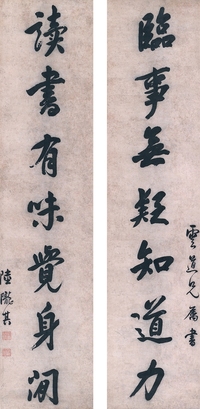 雲道兄屬書
臨事無疑知道力
讀書有味覺身閒
陸隴其